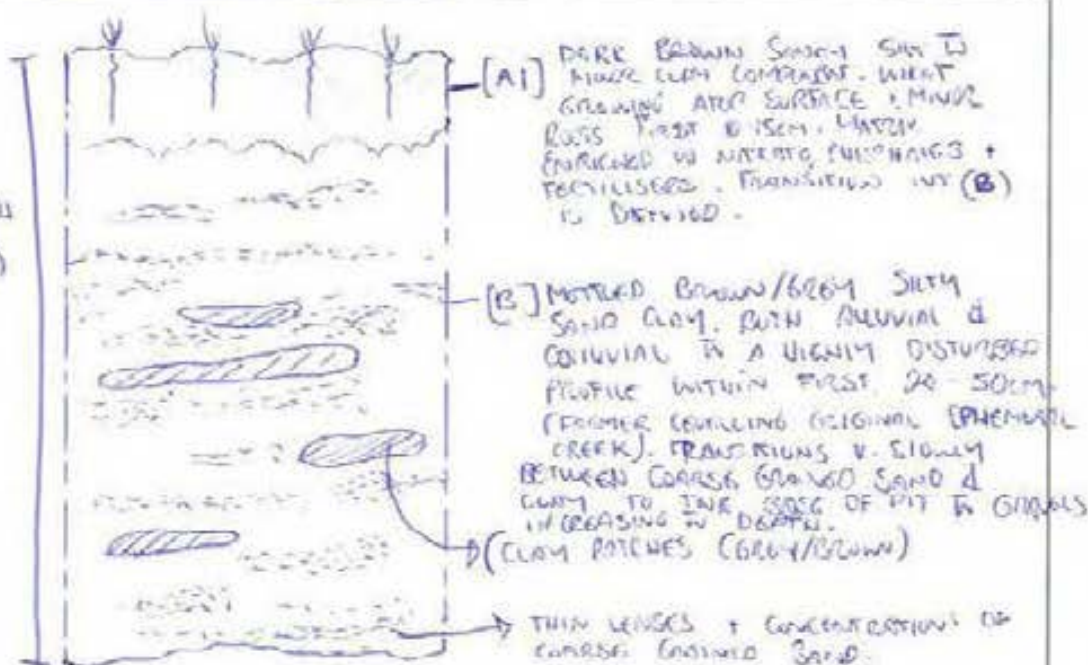 [A1] DARK BROWN SANDY SILT W
MINOR CLAY COMPONENT. WHEAT
GROWING ATOP SURFACE + MINOR
ROOTS FIRST 15CM. MATRIX
ENRICHED W NITRATE, PHOSPHATES +
FERTILISERS. TRANSITION INT (B)
IS DEFINED.
[B] MOTTLED BROWN/GREY SILTY
SAND CLAY. BOTH ALLUVIAL &
COLLUVIAL IN A HIGHLY DISTURBED
PROFILE WITHIN FIRST 20-50CM
(FORMER LEVELLING ORIGINAL EPHEMERAL
CREEK). TRANSITIONS V. SLOWLY
BETWEEN COARSE GRAINED SAND &
CLAY TO THE BASE OF PIT W GRAVELS
INCREASING W DEPTH.
(CLAY PATCHES (GREY/BROWN)
THIN LENSES + CONCENTRATIONS OF
COARSE GRAINED SAND.